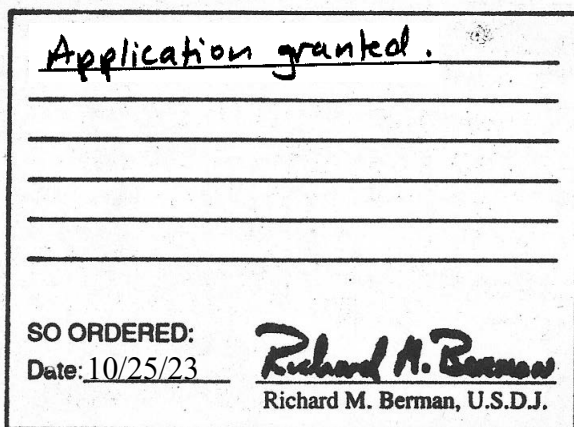 Application granted.
SO ORDERED:
Date: 10/25/23
Richard M. Berman
Richard M. Berman, U.S.D.J.